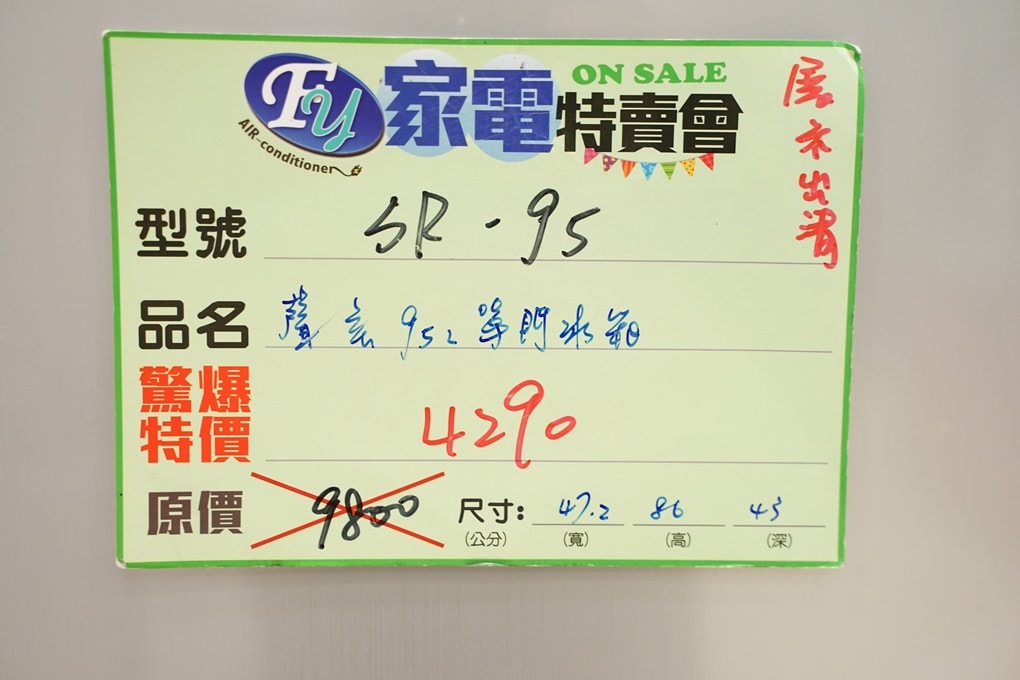 FY 家電 ON SALE
特賣會
AIR-conditioner
展示出清
型號 SR-95
品名 聲宝 95L 單門冰箱
驚爆特價 4290
原價 9800
尺寸: 47.2 86 43
(公分) (寬) (高) (深)